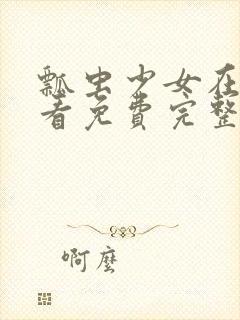 瓢虫少女在
看免费完整
啊麽